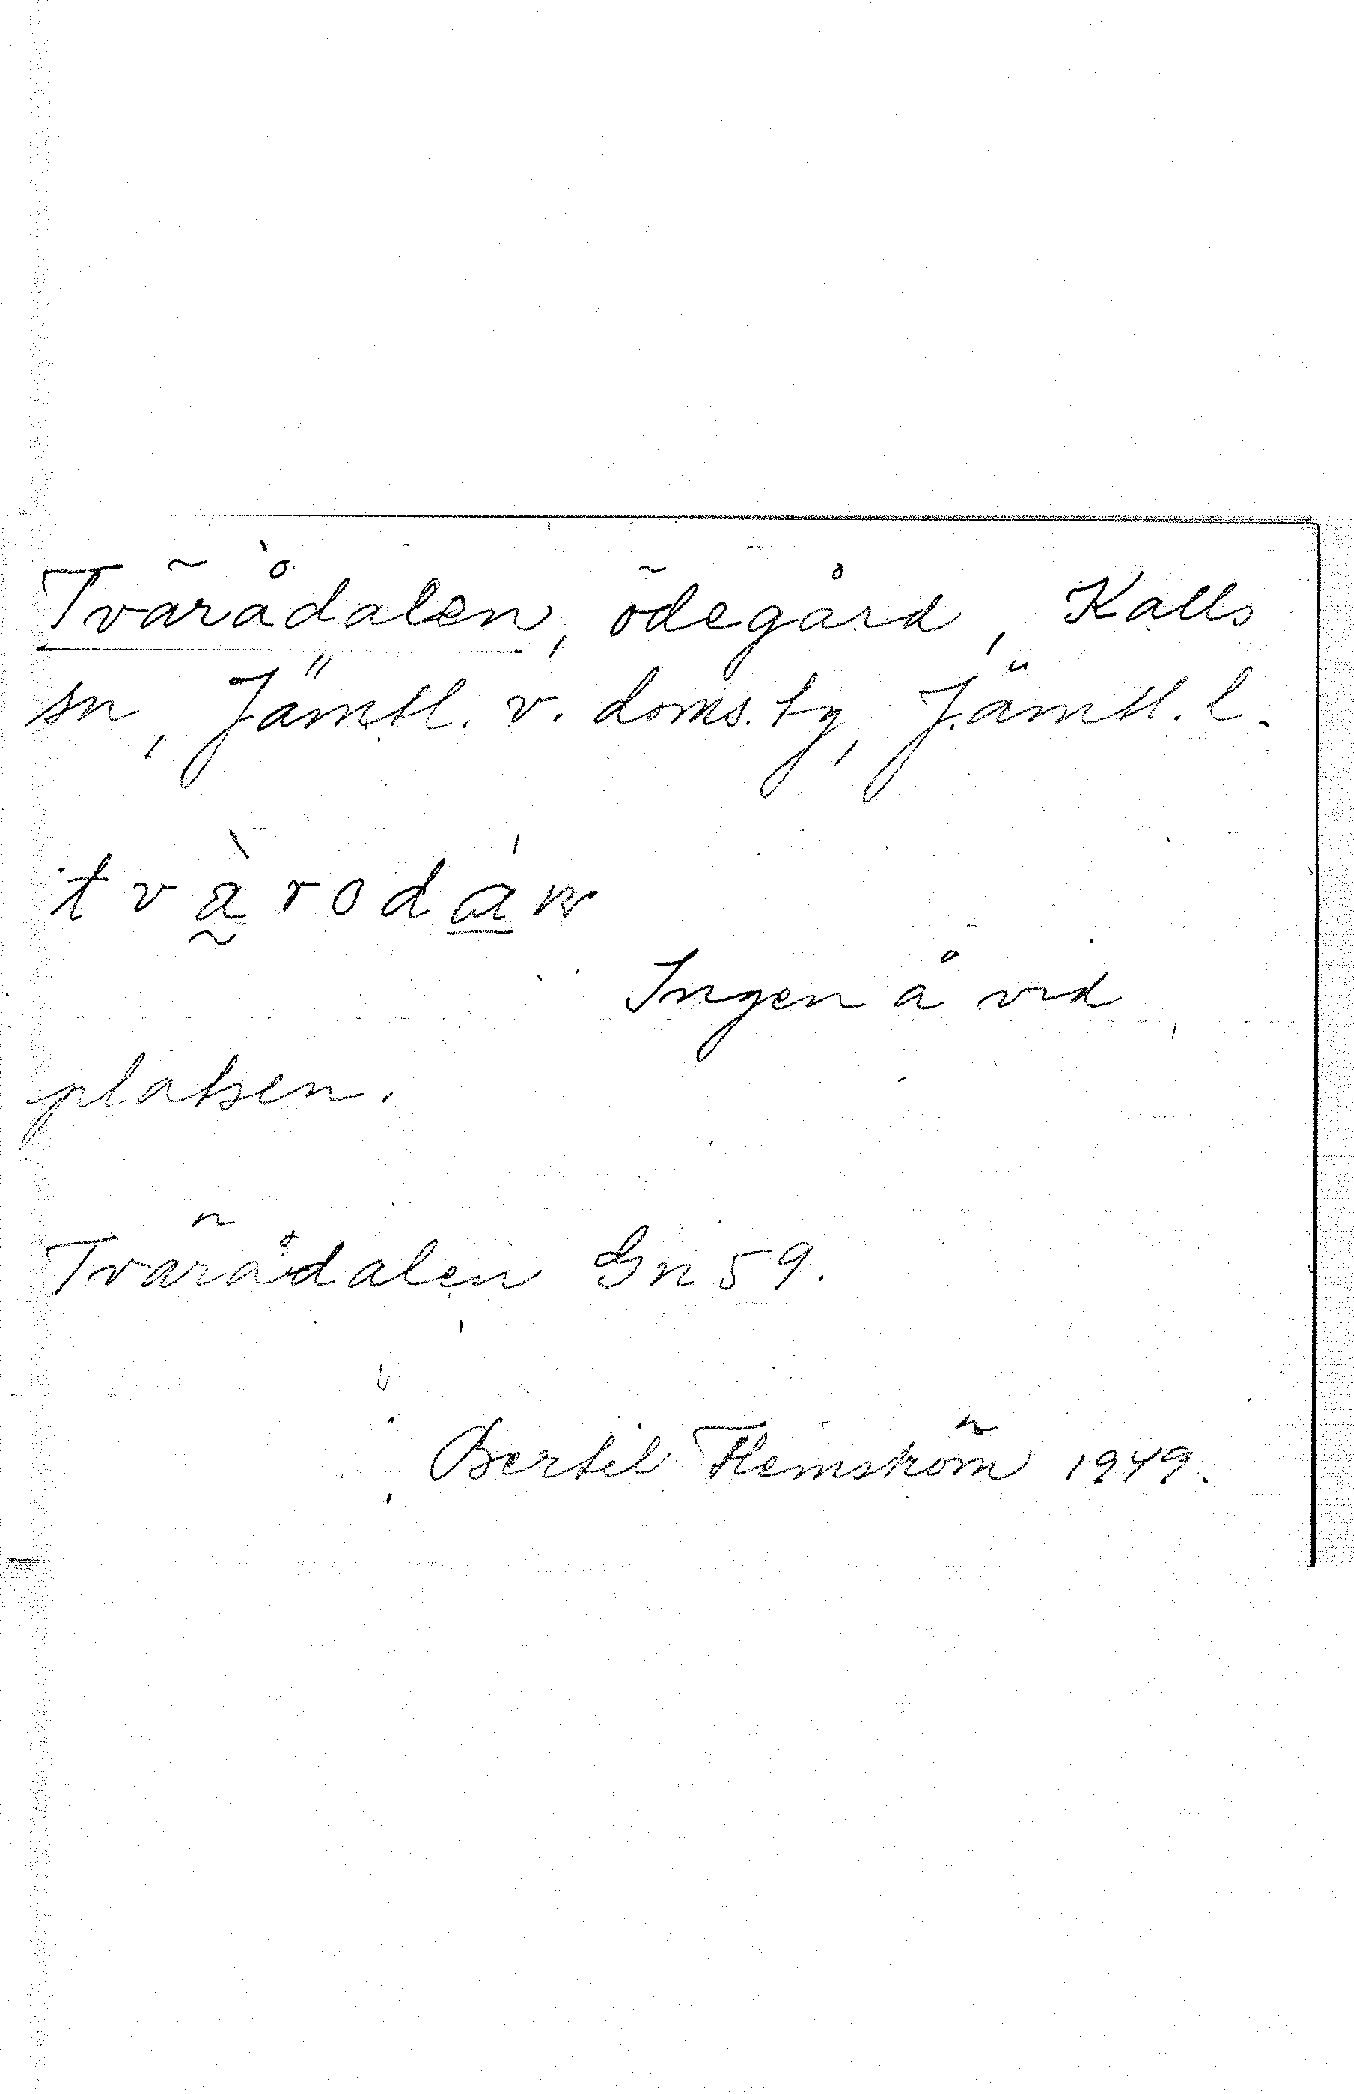 Tvärådalen, ödegård, Kalls
sn, Jämtl. v. doms.ty, Jämtl. l.
tvàrodán
Ingen å vid
platsen.
Tvärådalen Gn 59.
Bertil Flemström 1949.